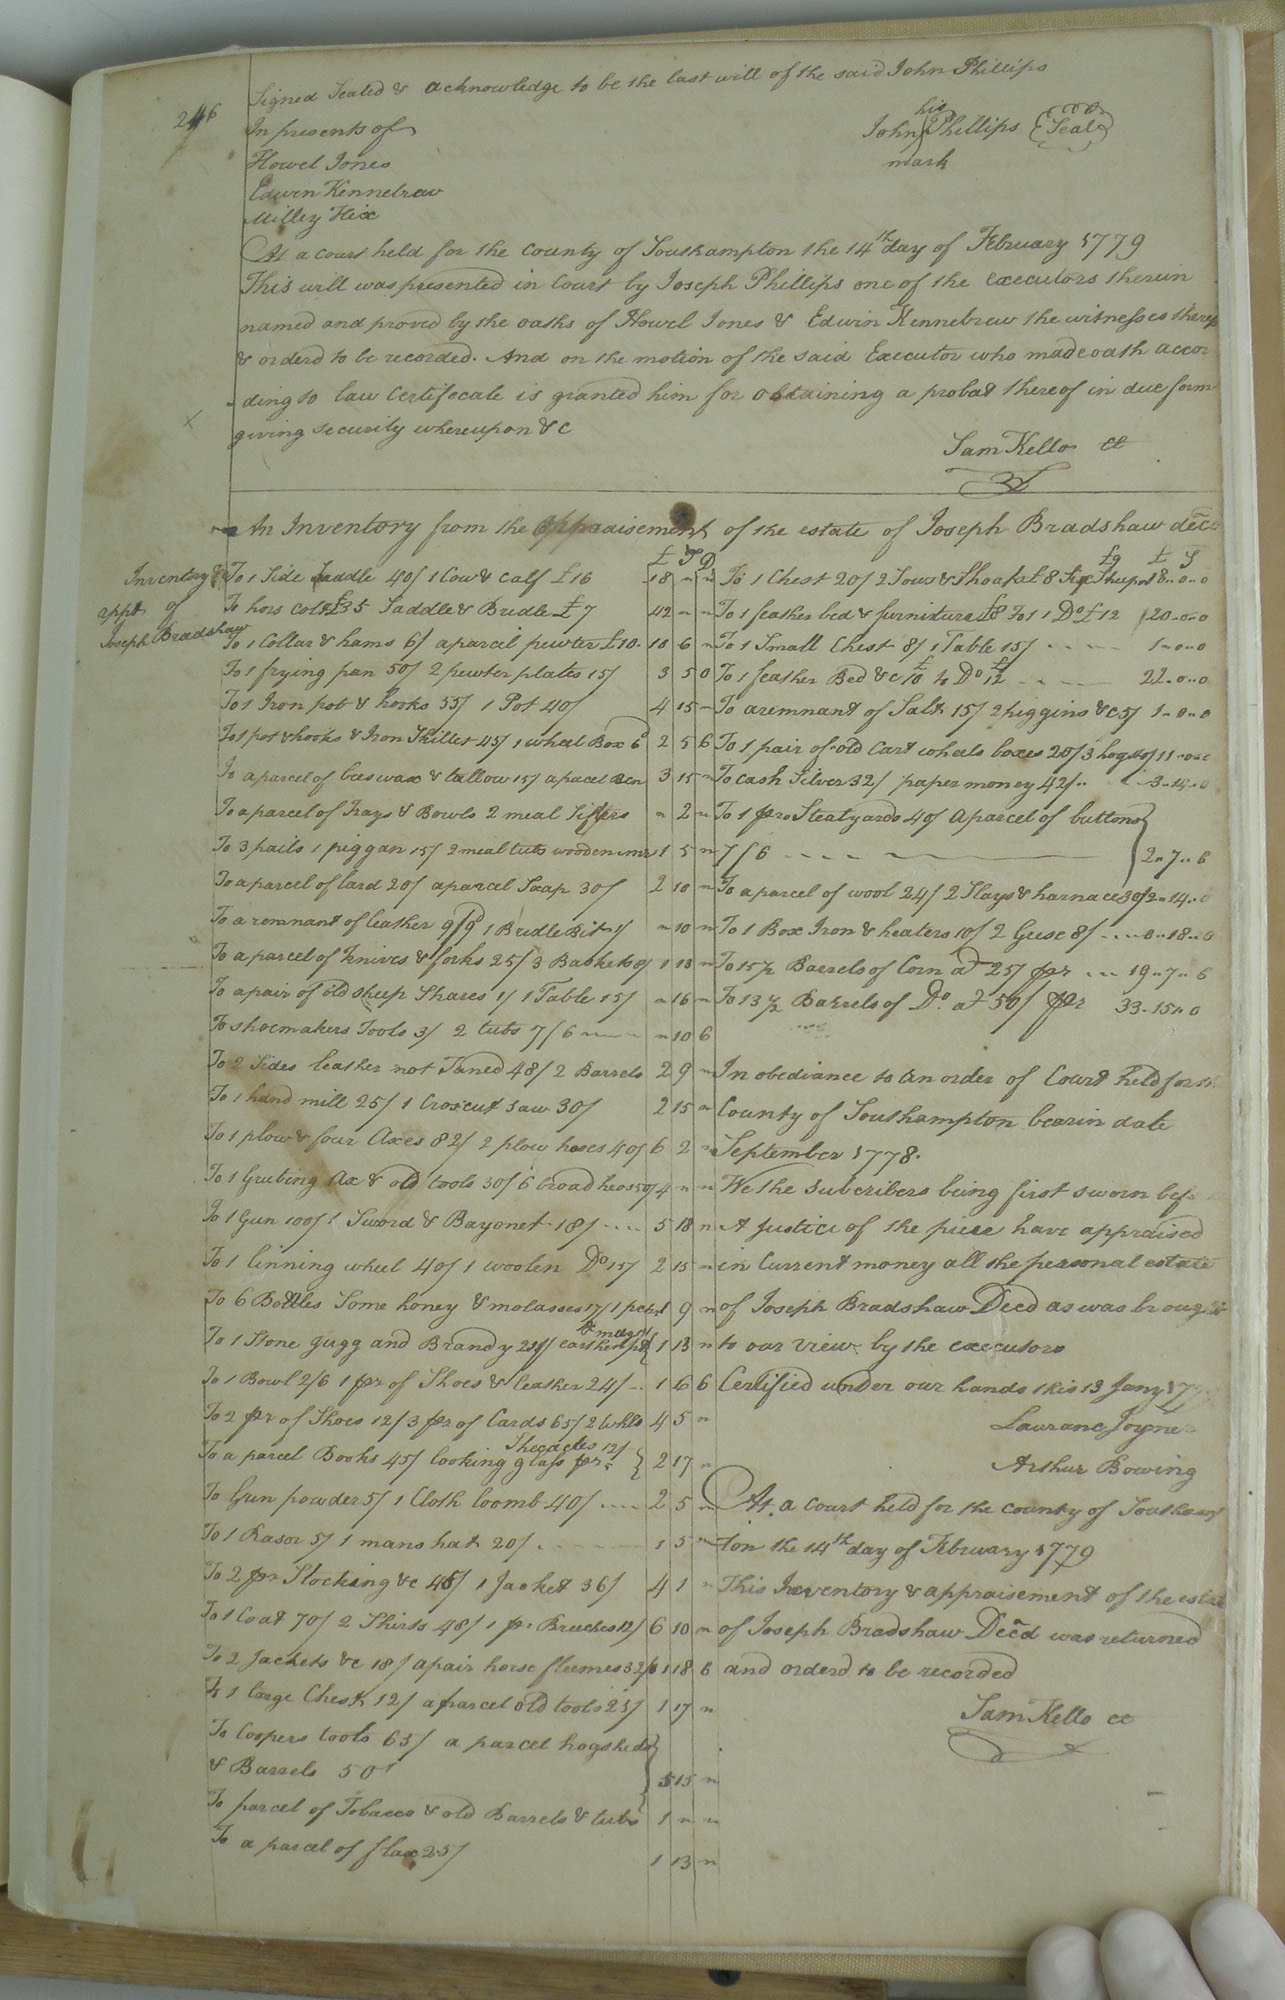 246
Signed Sealed & acknowledge to be the last will of the said John Phillips
In presents of
his
John Phillips Seal
mark
Howel Jones
Edwin Kennebrew
Milley Hix
At a court held for the county of Southampton the 14th day of February 1779
This will was presented in Court by Joseph Phillips one of the executors therein
named and proved by the oaths of Howel Jones & Edwin Kennebrew the witnesses
& orderd to be recorded. And on the motion of the said Executor who made oath accor
ding to law Certifecate is granted him for obtaining a probat thereof in due form
giving security whereupon &c
Sam Kello
An Inventory from the appraisement of the estate of Joseph Bradshaw decd
Inventory &
appt of
Joseph Bradshaw
£ S D
To 1 Side Saddle 40/ 1 Cow & Calf £16 18 " "
To hors colt £35 Saddle & Bridle £7 42 " "
To 1 Collar & hams 6/ a parcel pewter £10. 10 6 "
To 1 frying pan 50/ 2 pewter plates 15/ 3 5 0
To 1 Iron pot & hooks 55/ 1 Pot 40/ 4 15 "
To 1 pot & hooks & Iron Skillet 45/ 1 wheel Box 6d 2 5 6
To a parcel of bees wax & tallow 15/ a parcel 3 15 "
To a parcel of Trays & Bowls 2 meal Sifters " 2 "
To 3 pails 1 piggan 15/ 2 meal tubs wooden 1 5 "
To a parcel of lard 20/ a parcel Soap 30/ 2 10 "
To a remnant of leather 9/ 1 Bridle Bit 1/ " 10 "
To a parcel of Knives & forks 25/ 3 Baskets 1 13 "
To a pair of old sheep Shares 1/ 1 Table 15/ " 16 "
To shoemakers Tools 3/ 2 tubs 7/6 " 10 6
To 2 Sides leather not Taned 48/ 2 Barrels 2 9 "
To 1 hand mill 25/ 1 Croscut Saw 30/ 2 15 "
To 1 plow & four Axes 82/ 2 plow hoes 40/ 6 2 "
To 1 Grubing Ax & old tools 30/ 6 broad heos 50/ 4 " "
To 1 Gun 100/ 1 Sword & Bayonet 18/ 5 18 "
To 1 linning wheel 40/ 1 woolen Do 15/ 2 15 "
To 6 Bottles Some honey & molasses 17/ 1 1 9 "
To 1 Stone Jugg and Brandy & mugs earthen 1 13 "
To 1 Bowl 2/6 1 pr of Shoes & leather 24/ 1 6 6
To 2 pr of Shoes 12/ 3 pr of Cards 65/ 2 4 5 "
To a parcel Books 45/ looking glass pr 12/ 2 17 "
To Gun powder 5/ 1 Cloth loomb 40/ 2 5 "
To 1 Rasor 5/ 1 mans hat 20/ 1 5 "
To 2 pr Stocking &c 45/ 1 Jacket 36/ 4 1 "
To 1 Coat 70/ 2 Shirts 48/ 1 pr Breeches 12/ 6 10 "
To 2 Jackets &c 18/ a pair horse fleemes 1 18 6
To 1 large Chest 12/ a parcel old tools 25/ 1 17 "
To Coopers tools 65/ a parcel hogsheds
& Barrels 50/ 5 15 "
To parcel of Tobacco & old Barrels & tubs 1 " "
To a parcel of flax 25/ 1 13 "
£ S
To 1 Chest 20/ 2 Sows & Shoats £8 Six 18..0..0
To 1 feather bed & furniture £8 To 1 Do £12 20..0..0
To 1 Small Chest 8/ 1 Table 15/ 1..0..0
To 1 feather Bed &c £10 to Do £12 22..0..0
To a remnant of Salt 15/ 2 piggins &c 5/ 1..0..0
To 1 pair of old Cart wheels boxes 20/ 3 hogs 11..0..0
To cash Silver 32/ paper money 42/ 3..14..0
To 1 pr Stealyards 40/ A parcel of buttons
7/6 2..7..6
To a parcel of wool 24/ 2 Slays & harnaces 30/ 2..14..0
To 1 Box Iron & heaters 10/ 2 Geese 8/ 0..18..0
To 15½ Barrels of Corn at 25/ pr 19..7..6
To 13½ Barrels of Do. at 50/ pr 33..15..0
In obediance to an order of Court held for the
County of Southampton bearin date
September 1778.
We the Subcribers being first sworn bef
A Justice of the piece have appraised
in Current money all the personal estate
of Joseph Bradshaw Decd as was brought
to our view by the executors
Certified under our hands this 13 Jany
Lauranc Joyne
Arthur Bowing
At a court held for the county of Southamp
ton the 14th day of February 1779
This Inventory & appraisement of the estate
of Joseph Bradshaw Decd was returned
and orderd to be recorded
Sam Kello